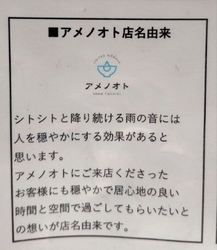 ■アメノオト店名由来
アメノオト
シトシトと降り続ける雨の音には
人を穏やかにする効果があると
思います。
アメノオトにご来店くださった
お客様にも穏やかで居心地の良い
時間と空間で過ごしてもらいたいと
の想いが店名由来です。